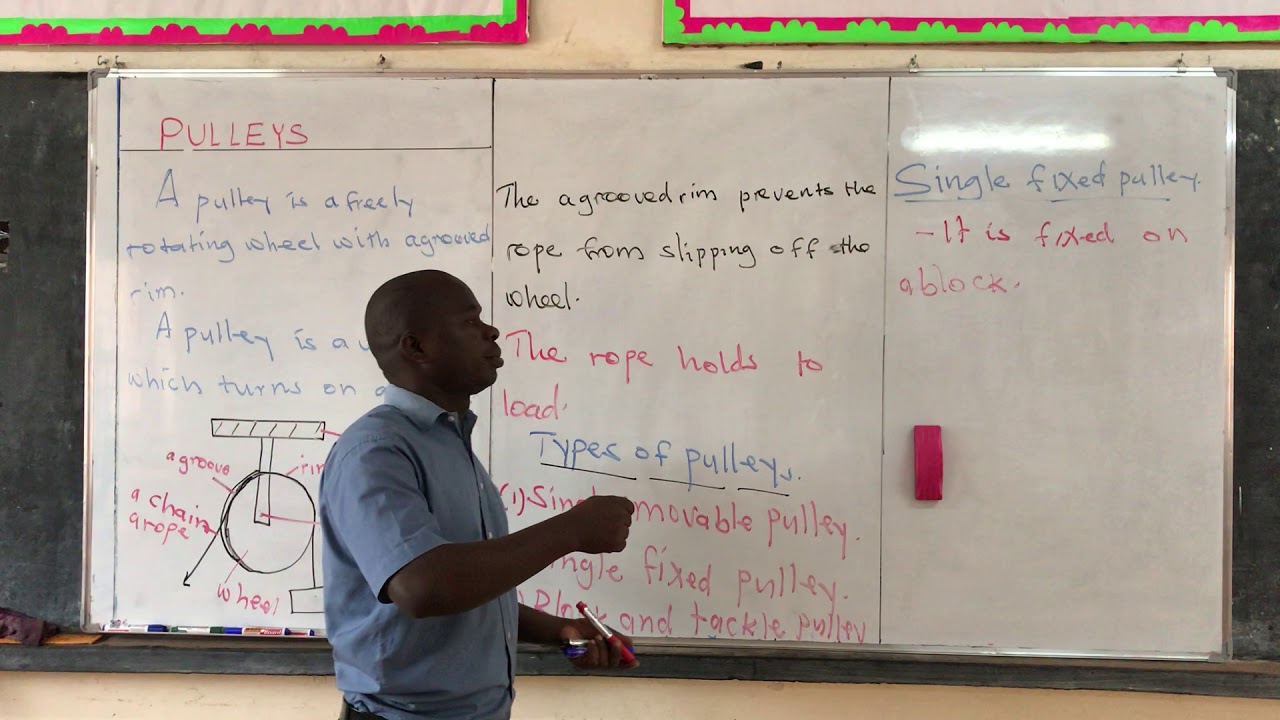 PULLEYS
A pulley is a freely
rotating wheel with agrooved
rim.
A pulley is a
which turns on a
agroove
rim
a chain
arope
wheel
The agrooved rim prevents the
rope from slipping off the
wheel.
The rope holds to
load.
Types of pulleys.
(1). Single movable pulley.
Single fixed pulley.
Block and tackle pulley
Single fixed pulley.
- It is fixed on
ablock.